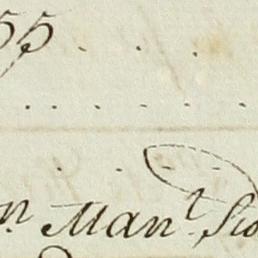 55 . . .
. . . . . .
n. Man.t